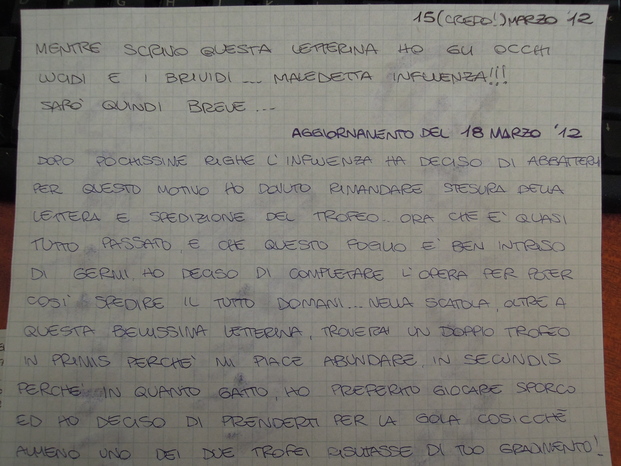 15 (CREDO!) MARZO '12
MENTRE SCRIVO QUESTA LETTERINA HO GLI OCCHI
LUCIDI E I BRIVIDI... MALEDETTA INFLUENZA!!!
SARO' QUINDI BREVE...
AGGIORNAMENTO DEL 18 MARZO '12
DOPO POCHISSINE RIGHE L'INFLUENZA HA DECISO DI ABBATTERMI
PER QUESTO MOTIVO HO DOVUTO RIMANDARE STESURA DELLA
LETTERA E SPEDIZIONE DEL TROFEO.. ORA CHE E' QUASI
TUTTO PASSATO, E CHE QUESTO FOGLIO E' BEN INTRISO
DI GERMI, HO DECISO DI COMPLETARE L'OPERA PER POTER
COSI' SPEDIRE IL TUTTO DOMANI... NELLA SCATOLA, OLTRE A
QUESTA BELLISSINA LETTERINA, TROVERAI UN DOPPIO TROFEO
IN PRIMIS PERCHE' MI PIACE ABUNDARE, IN SECUNDIS
PERCHE' IN QUANTO GATTO, HO PREFERITO GIOCARE SPORCO
ED HO DECISO DI PRENDERTI PER LA GOLA COSICCHÈ
ALMENO UNO DEI DUE TROFEI RISULTASSE DI TUO GRADIMENTO!